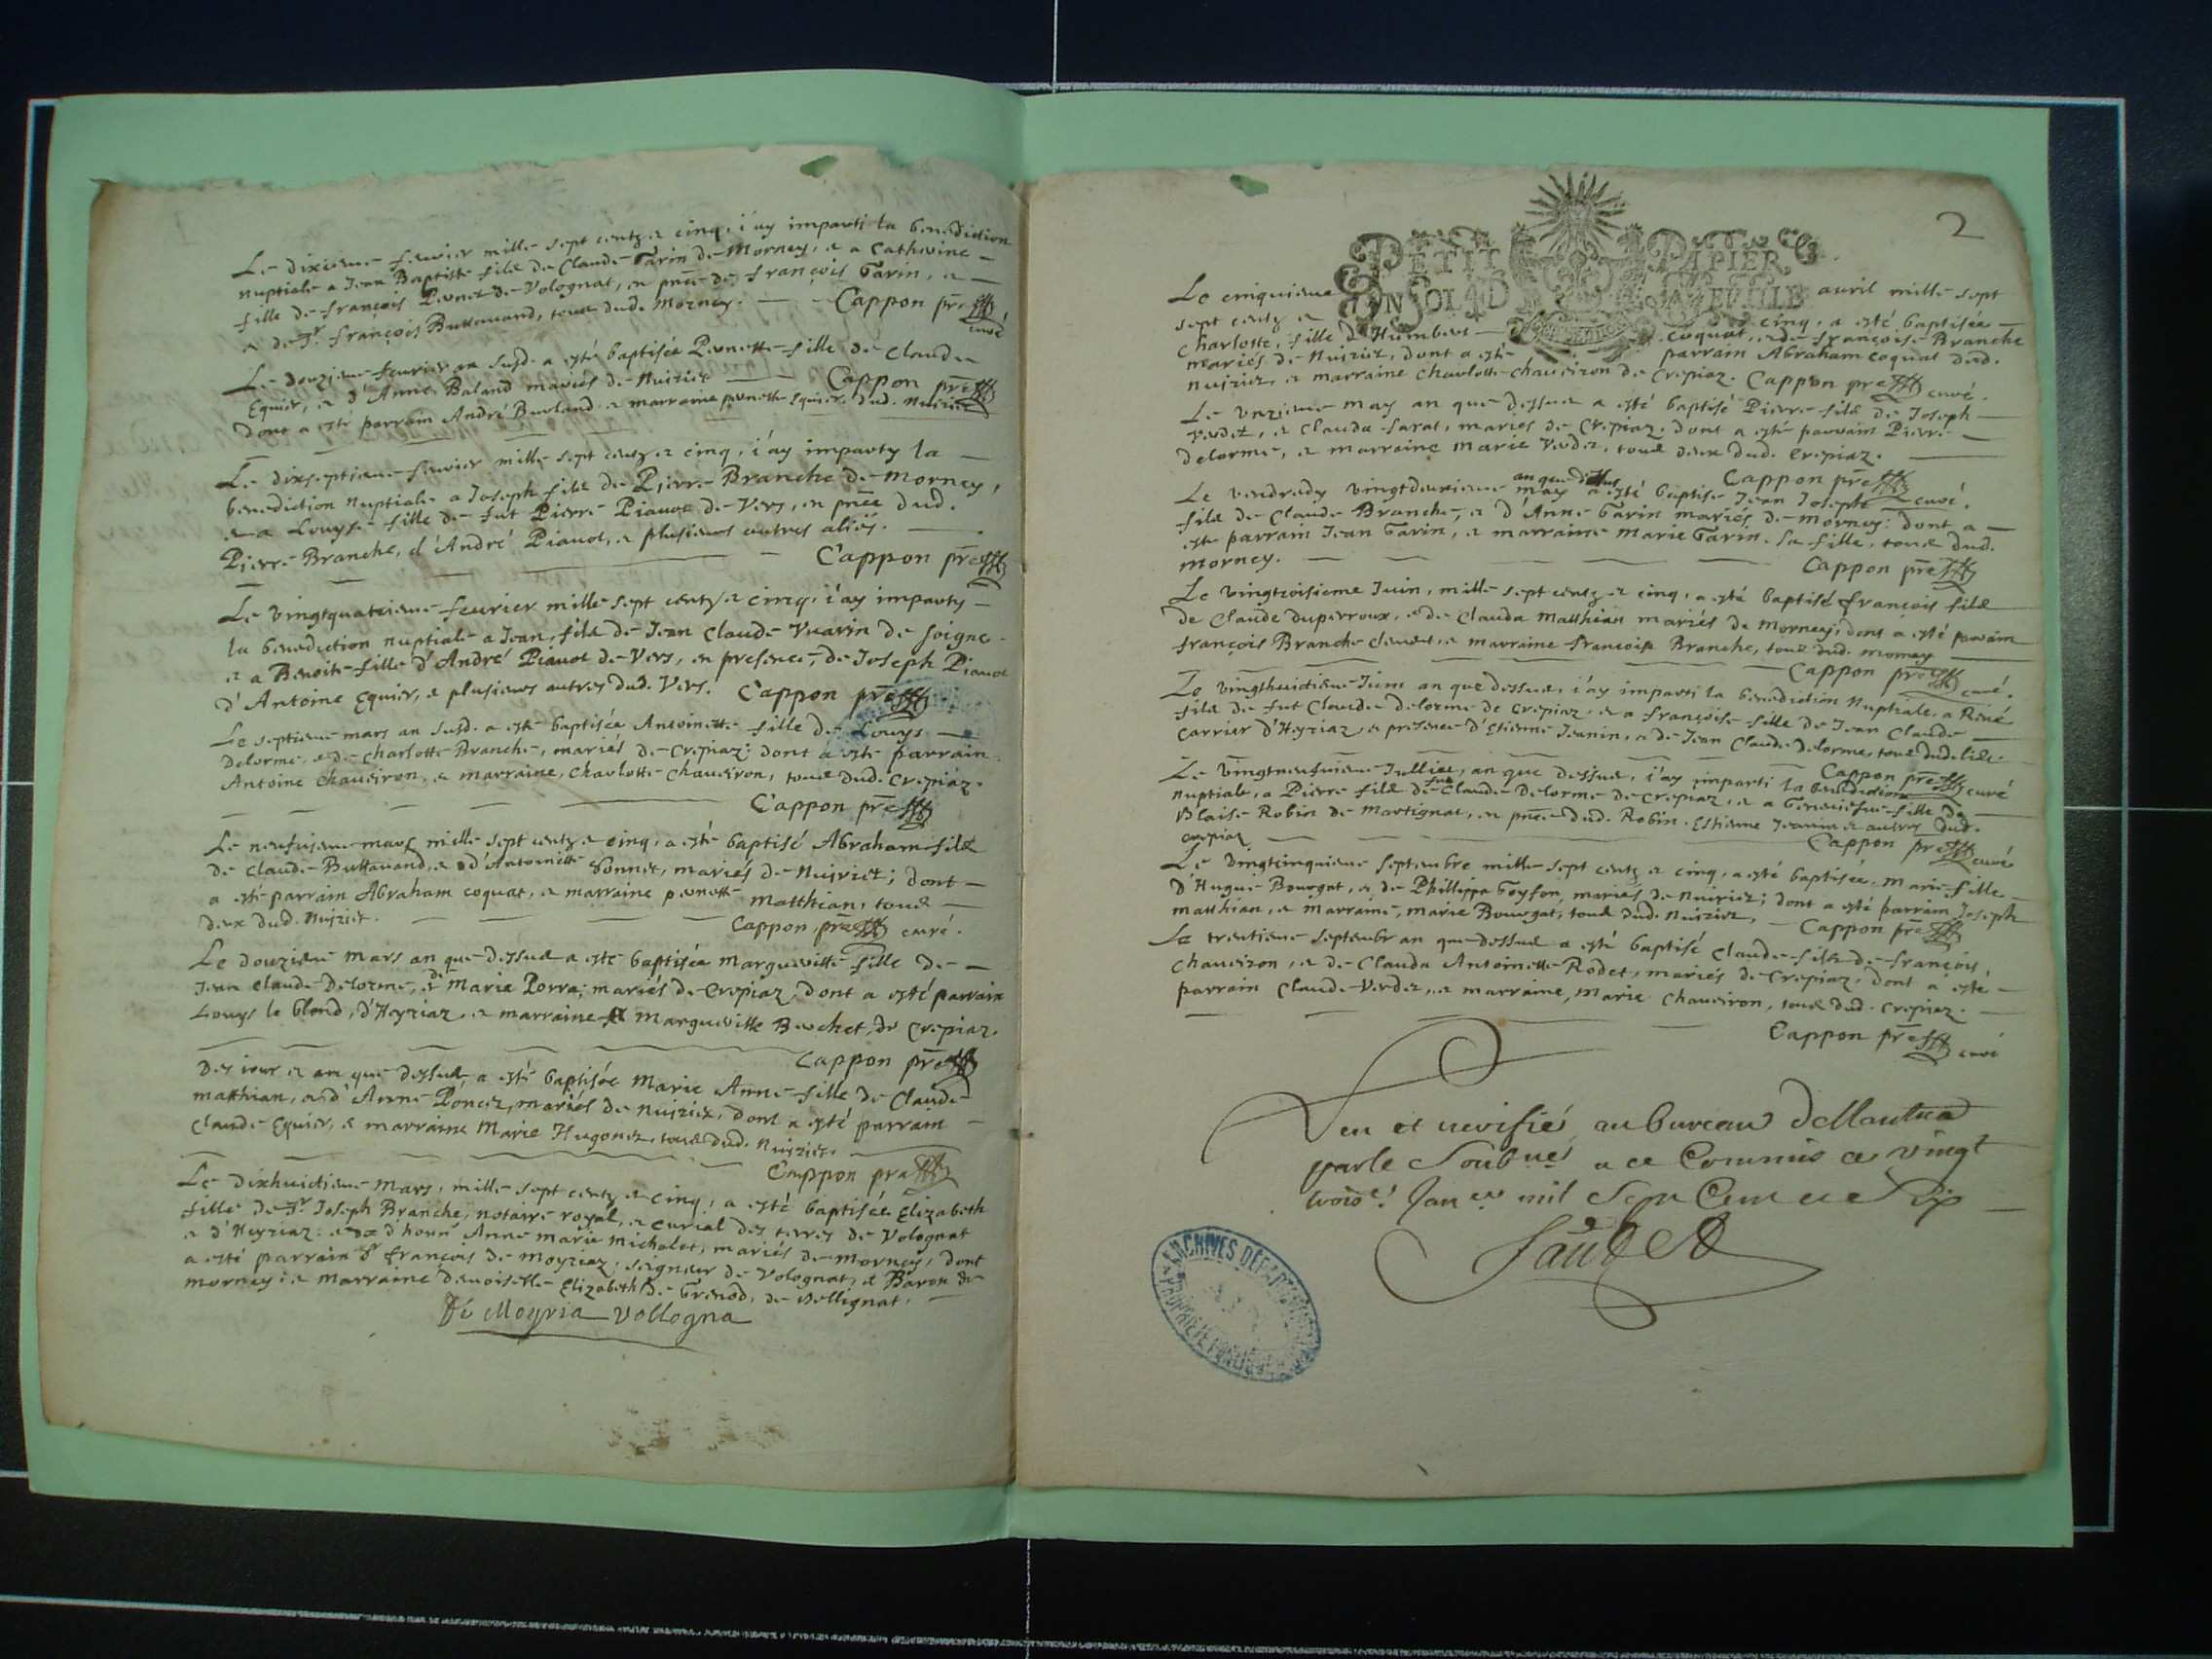 Le dixieme feurier mille sept centz et cinq, i'ay imparti la benediction
nuptiale a Jean Baptiste filz de Claude Garin de Mornay, et a Catherine
fille de françois Pernet de Volognat, en pñce de françois Garin, et
et de Sr. françois Buttavand, tous dud. Mornay. Cappon prê
curé
Le douzieme feurier an susd. a esté baptisée Pernette fille de Claude
Equier, et d'Anne Baland mariés de Nuiriez Cappon prê
dont a esté parrain André Burland et marraine pernette Equier dud. Nuiriez
Le dixseptieme feurier mille sept centz et cinq, i'ay imparty la
benediction nuptiale a Joseph filz de Pierre Branche de Morney,
et a Louyse fille de fut Pierre Piauot de Vers, en pñce dud.
Pierre Branche, d'André Piauot, et plusieurs autres aliés.
Cappon prê
Le vingtquatrieme feurier mille sept centz et cinq, i'ay imparty
la benediction nuptiale a Jean, filz de Jean Claude Vuarin de Soigne
et a Benoite fille d'André Piauot de Vers, en presence, de Joseph Piauot
d'Antoine Equier, et plusieurs autres dud. Vers. Cappon prê
Le septieme mars an susd. a esté baptisée Antoinette fille de Louys
Delorme, et de Charlotte Branche, mariés de Crepiaz: dont a esté parrain
Antoine Chaueiron, et marraine, Charlotte Chaueiron, tous dud. Crepiaz.
Cappon prê
Le neufuieme mars mille sept centz et cinq, a esté baptisé Abraham filz
de Claude Buttavand, et d'Antoinette Sonnet, mariés de Nuiriet; dont
a esté parrain Abraham coquat, et marraine pernette Matthian, tous
deux dud. Nuiriet. Cappon prê curé.
Le douzieme mars an que dessus a esté baptisée Margueritte fille de
Jean Claude Delorme, et de Marie Porra, mariés de Crepiaz, dont a esté parrain
Louys le blond, d'Heyriaz, et marraine Margueritte Bechet, de Crepiaz.
Cappon prê
Des iour et an que dessus, a esté baptisée Marie Anne fille de Claude
Matthian, et d'Anne Poncet, mariés de Nuiriez, dont a esté parrain
Claude Equier, et marraine Marie Hugonet, tous dud. Nuiriez.
Cappon prê
Le dixhuictieme mars, mille sept centz et cinq, a esté baptisée Elizabeth
fille de Sr. Joseph Branche, notaire royal, et curial des terres de Volognat
et d'Heyriaz: et d'honn Anne marie Michalet, mariés de Morney, dont
a esté parrain Sr françois de Moyriaz, seigneur de Volognat, et Baron de
Morney: et marraine Demoiselle Elizabeth de Grenod, de Bellignat.
De Moyria Vollogna
2
PETIT PAPIER
UN SOL 4 D LA FEUILLE
Le cinquieme avril mille sept
sept centz et cinq, a esté baptisée
Charlotte, fille d'Humbert coquat, et de françoise Branche
mariés de Nuiriet, dont a esté parrain Abraham coquat dud.
Nuiriez, et marraine Charlotte chaueiron de Crepiaz. Cappon prê curé.
Le vnzieme may an que dessus a esté baptisé Pierre filz de Joseph
Verdet, et Clauda Sarat, mariés de Crepiaz, dont a esté parrain Pierre
Delorme, et marraine Marie Verdet, tous deux dud. Crepiaz.
Cappon prê curé.
Le vendredy vingtdeuxieme may an que dessus a esté baptisé Jean Joseph
filz de Claude Branche, et d'Anne Garin mariés de Morney: dont a
esté parrain Jean Garin, et marraine Marie Garin sa fille, tous dud.
Morney. Cappon prê
Le vingtroisieme Juin, mille sept centz et cinq, a esté baptisé françois filz
de Claude Duperroux, et de Clauda Matthian mariés de Morney, dont a esté parrain
françois Branche et marraine françoise Branche, tous dud. Morney
Cappon prê curé.
Le vingthuictieme Juin an que dessus, i'ay imparti la benediction nuptiale, a René
filz de fut Claude Delorme de Crepiaz, et a françoise fille de Jean Claude
Carrier d'Heyriaz, en presence d'Estienne Jeanin, et de Jean Claude Delorme, tous dud. lieu.
Cappon prê curé
Le vingtneufuieme Jullier, an que dessus, i'ay imparti la benediction
nuptiale, a Pierre filz de fut Claude Delorme de Crepiaz, et a Geneuiefue fille de
Blaise Robin de Martignat, en pñce dud. Robin, Estienne Jeanin et autres dud.
Crepiaz Cappon prê curé
Le vingtcinquieme septembre mille sept centz et cinq, a esté baptisée Marie fille
d'Huguè Bourgat, et de Phillippa Goyfon, mariés de Nuiriez; dont a esté parrain Joseph
Matthian, et marraine, Marie Bourgat, tous dud. Nuiriez, Cappon prê
Le trentieme septembr an que dessus a esté baptisé Claude filz de françois
chaueiron, et de Clauda Antoinette Rodet, mariés de Crepiaz, dont a esté
parrain Claude Verdet, et marraine, Marie Chaueiron, tous dud. Crepiaz.
Cappon prê curé
Veu et verifié au bureau de Nantua
par le Soubne a ce Commis ce vingt
troise. Janer mil Sept Cent et Six
ARCHIVES DÉPARTEMENTALES
AIN
PROPRIÉTÉ PUBLIQUE